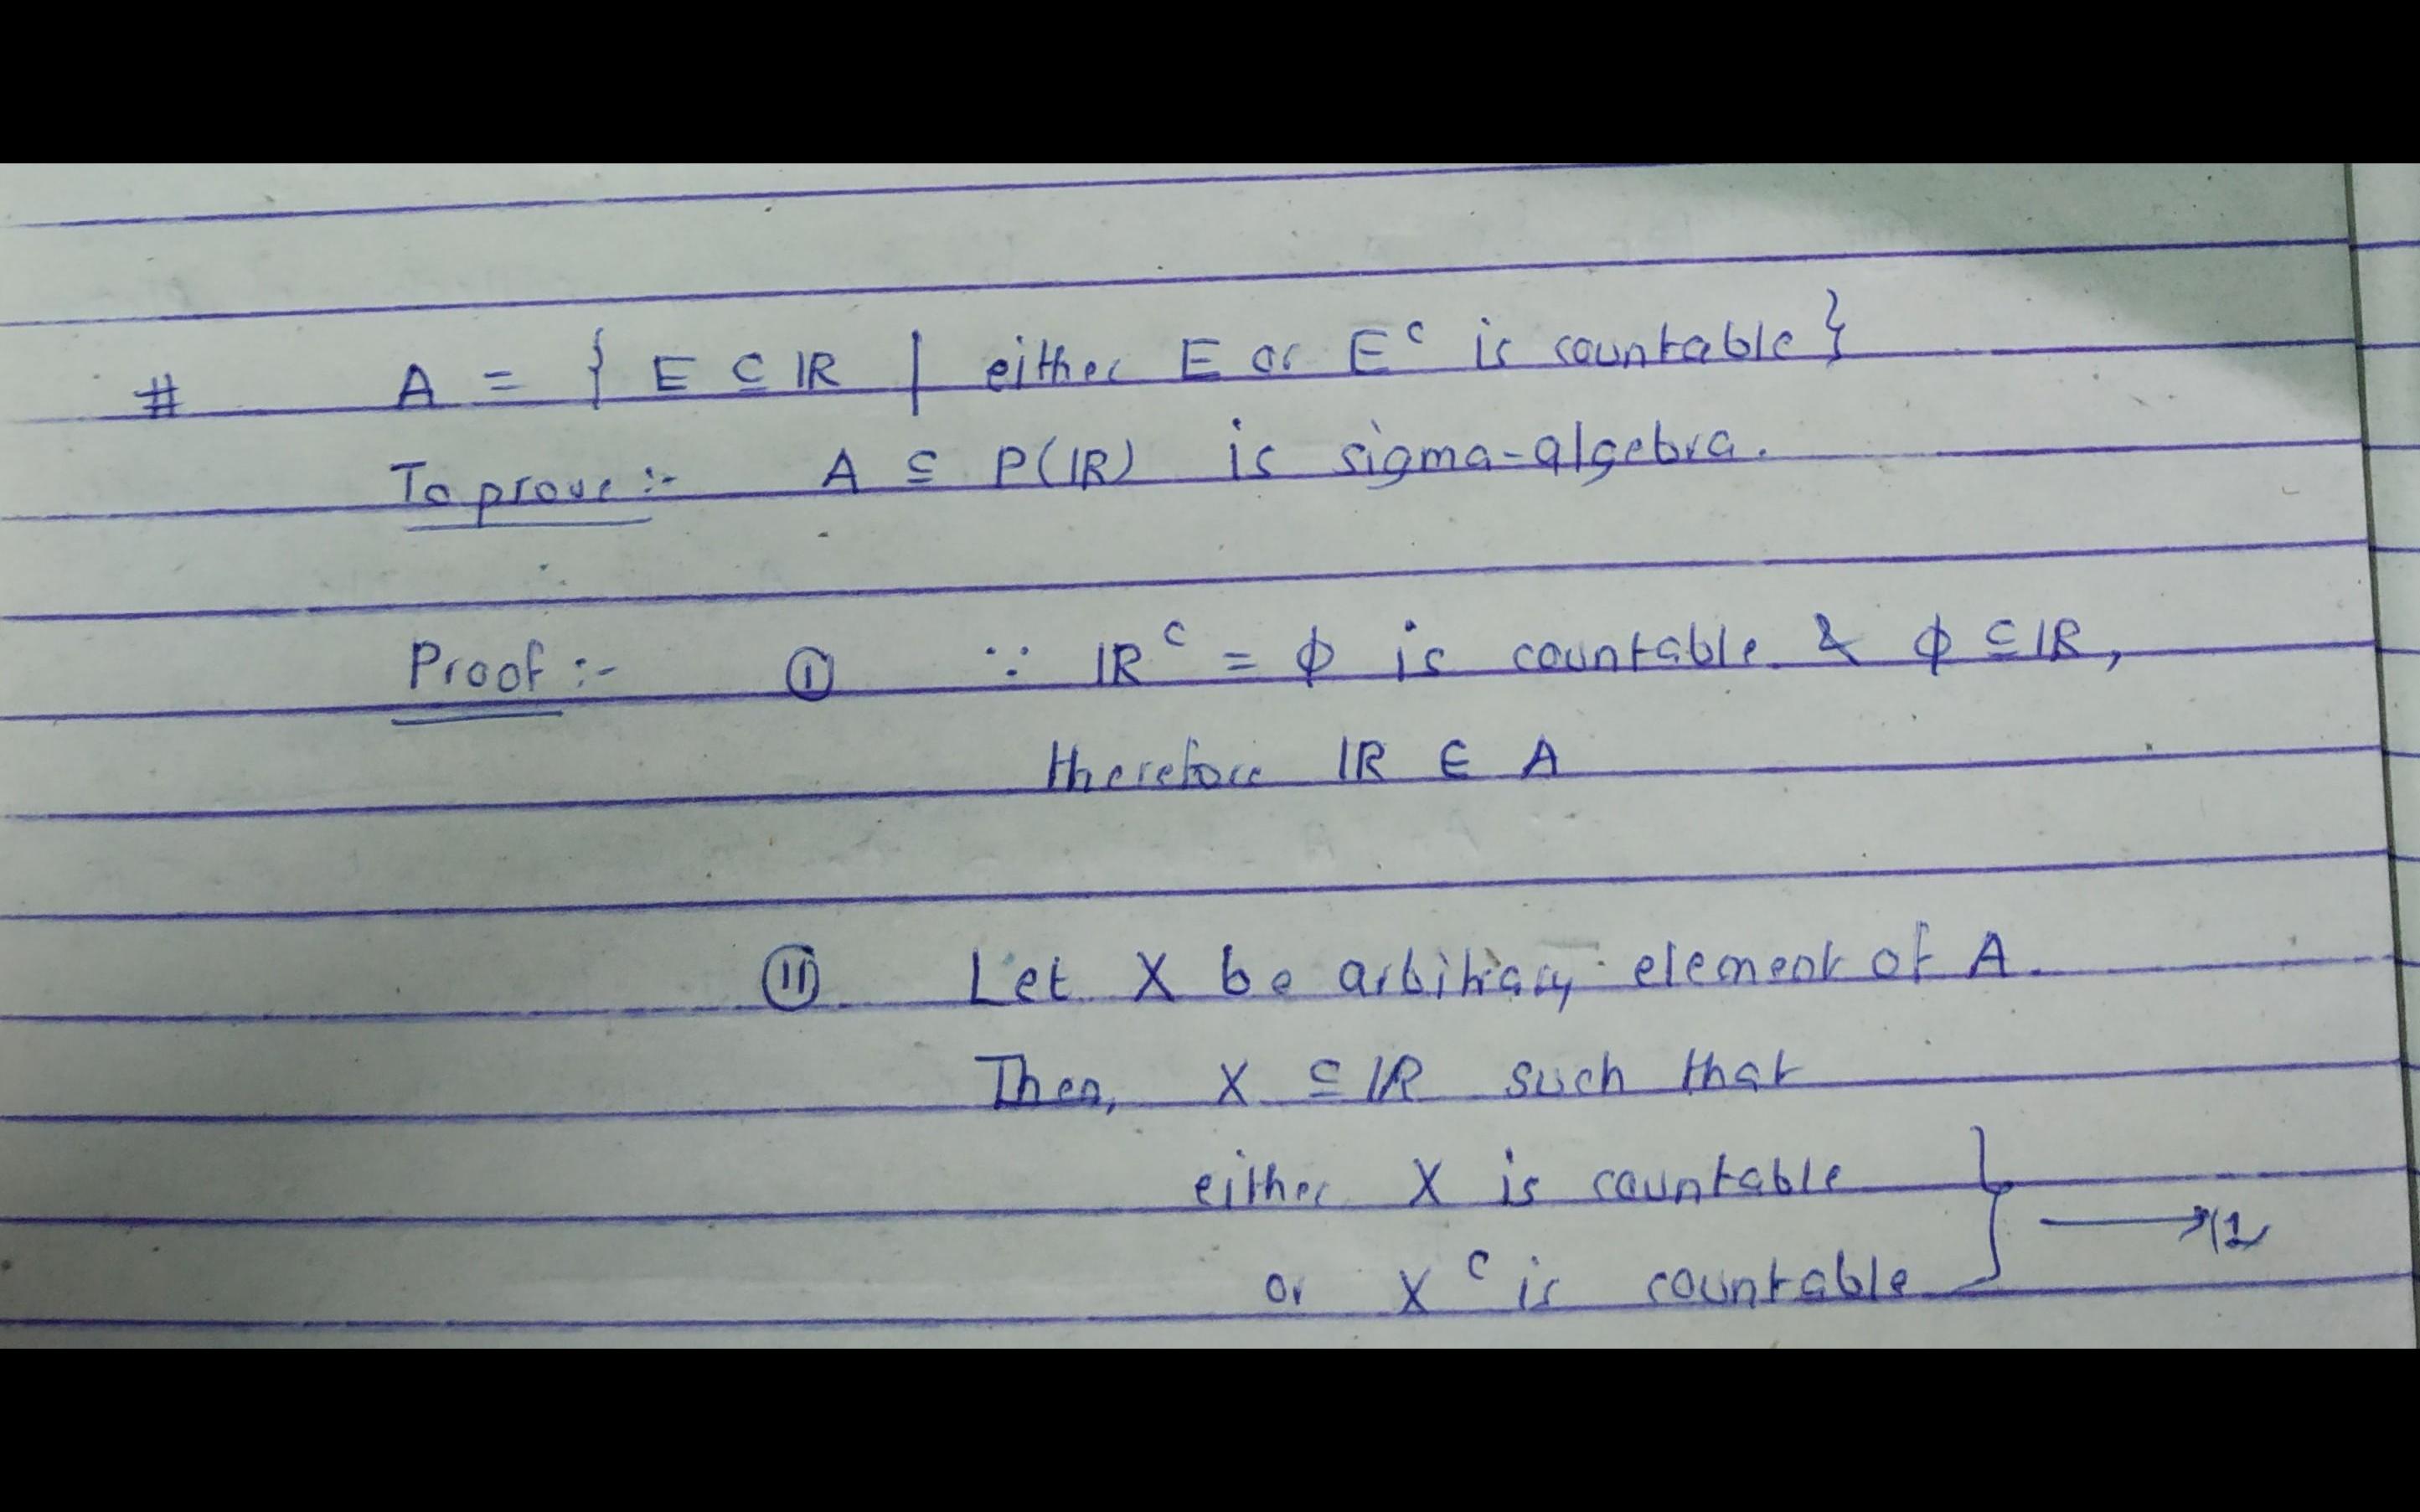 # A = { E ⊆ IR | either E or E^c is countable }
To prove :- A ⊆ P(IR) is sigma-algebra.
Proof :- (I) ∵ IR^c = ϕ is countable & ϕ ⊆ IR,
therefore IR ∈ A
(II) Let X be arbitrary element of A.
Then, X ⊆ IR such that
either X is countable
or X^c is countable